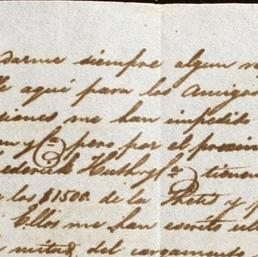 darme siempre algun
aquí para los amigos
siones me han impedido
pero por el proximo
Frederick Huth y Ca tienen
los $1500. de la
Ellos me han escrito
mitad del cargamento